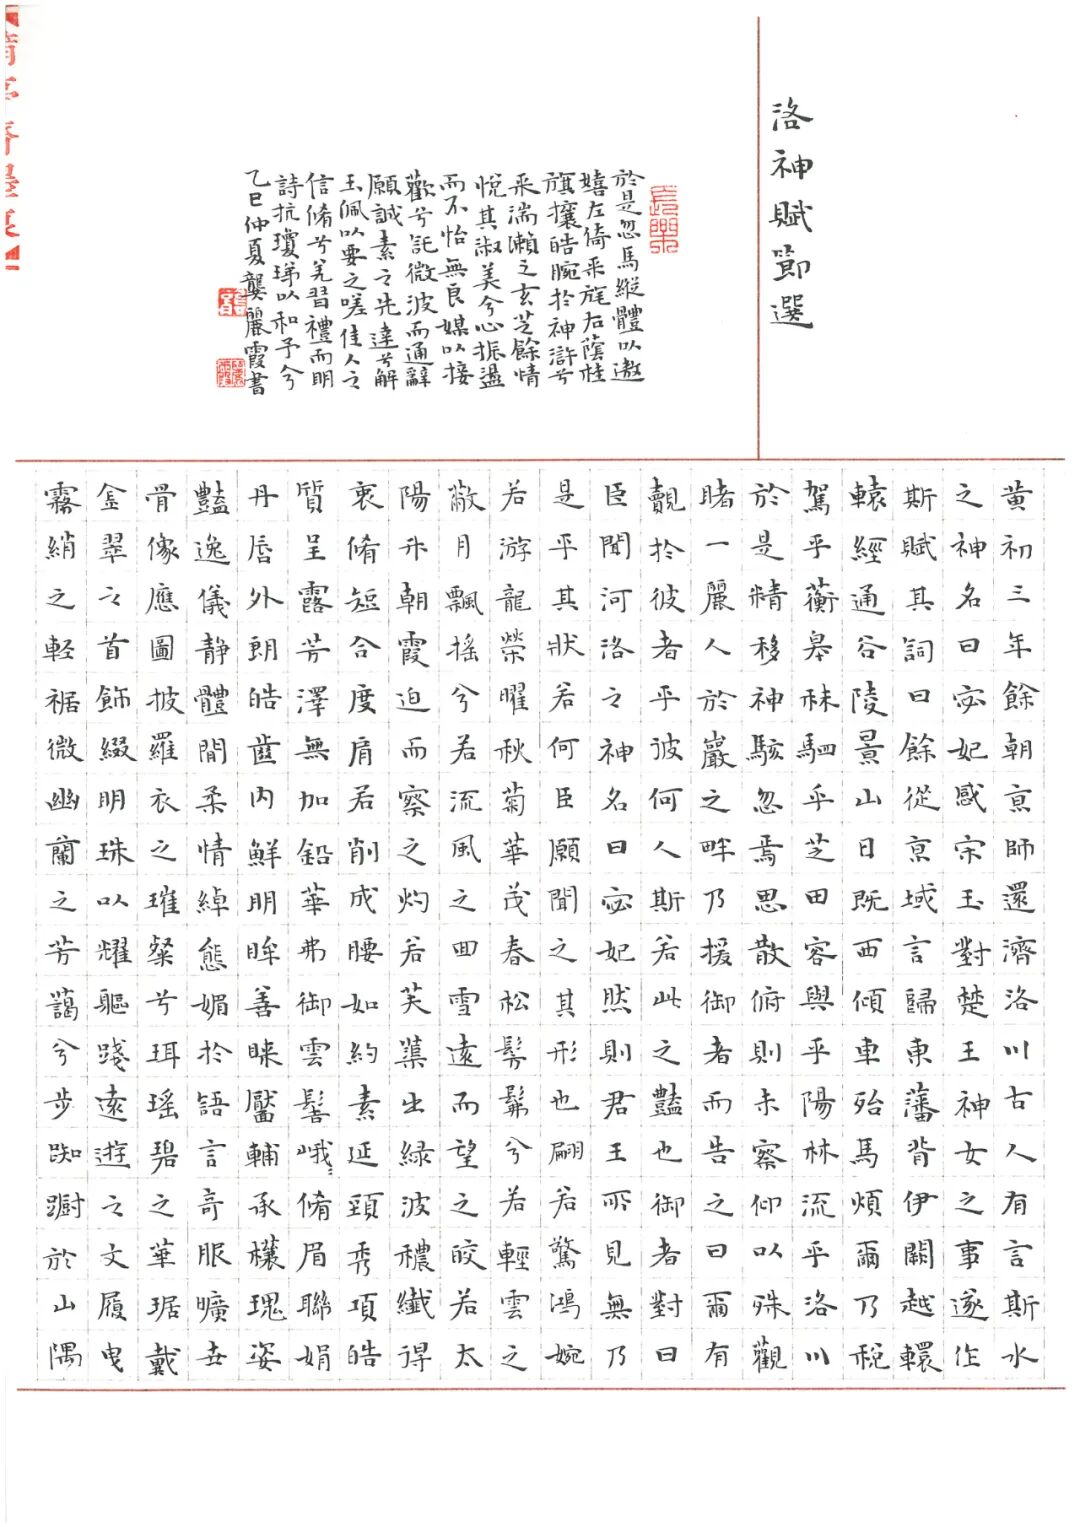 洛神賦節選
黄初三年餘朝京師還濟洛川古人有言斯水
之神名曰宓妃感宋玉對楚王神女之事遂作
斯賦其詞曰餘從京域言歸東藩背伊闕越轘
轅經通谷陵景山日既西傾車殆馬煩爾乃稅
駕乎蘅皋秣駟乎芝田容與乎陽林流乎洛川
於是精移神駭忽焉思散俯則未察仰以殊觀
睹一麗人於巖之畔乃援御者而告之曰爾有
覿於彼者乎彼何人斯若此之豔也御者對曰
臣聞河洛之神名曰宓妃然則君王所見無乃
是乎其狀若何臣願聞之其形也翩若驚鴻婉
若游龍榮曜秋菊華茂春松髣髴兮若輕雲之
蔽月飄搖兮若流風之回雪遠而望之皎若太
陽升朝霞迫而察之灼若芙蕖出緑波穠纖得
衷脩短合度肩若削成腰如約素延頸秀項皓
質呈露芳澤無加鉛華弗御雲髻峨々脩眉聯娟
丹唇外朗皓齒内鮮明眸善睞靨輔承權瑰姿
豔逸儀静體閒柔情綽態媚於語言奇服曠世
骨像應圖披羅衣之璀粲兮珥瑶碧之華琚戴
金翠之首飾綴明珠以耀軀踐遠遊之文履曳
霧綃之輕裾微幽蘭之芳藹兮步踟躕於山隅
於是忽焉縱體以遨
嬉左倚采旄右蔭桂
旗攘皓腕於神滸兮
采湍瀨之玄芝餘情
悅其淑美兮心振盪
而不怡無良媒以接
歡兮託微波而通辭
願誠素之先達兮解
玉佩以要之嗟佳人之
信脩兮羌習禮而明
詩抗瓊珶以和予兮
乙巳仲夏龔麗霞書
長樂